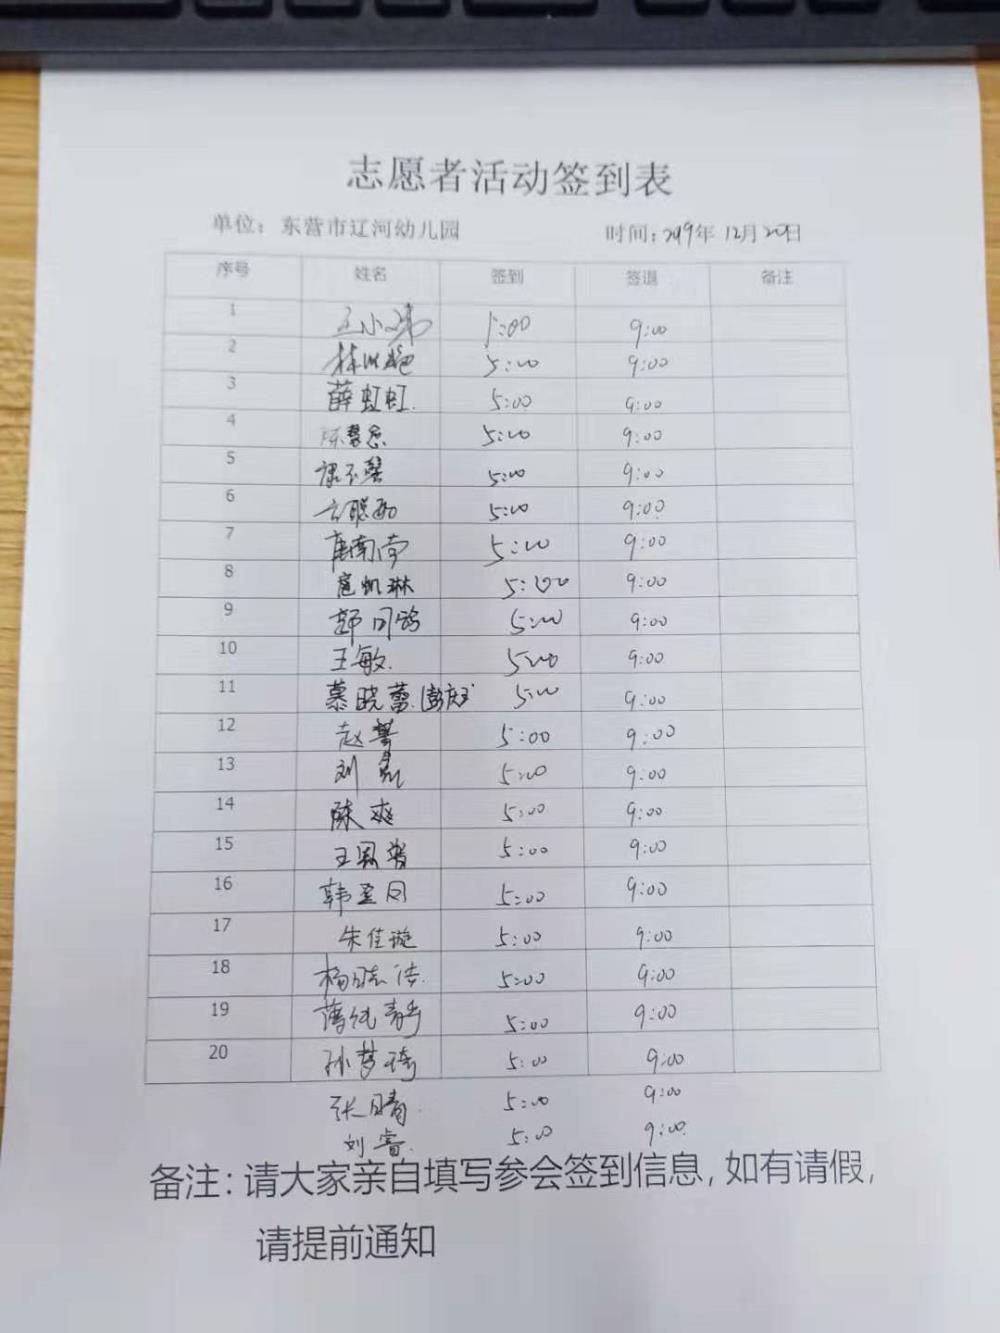 志愿者活动签到表
单位：东营市辽河幼儿园 时间：2019年12月20日
序号 姓名 签到 签退 备注
1 5:00 9:00
2 5:00 9:00
3 薛虹虹. 5:00 9:00
4 5:00 9:00
5 5:00 9:00
6 5:00 9:00
7 5:00 9:00
8 5:00 9:00
9 5:00 9:00
10 王敏. 5:00 9:00
11 慕晓蕾 5:00 9:00
12 5:00 9:00
13 刘磊 5:00 9:00
14 陈爽 5:00 9:00
15 5:00 9:00
16 5:00 9:00
17 朱佳璇 5:00 9:00
18 5:00 9:00
19 5:00 9:00
20 孙梦琦 5:00 9:00
张晴. 5:00 9:00
刘睿. 5:00 9:00
备注：请大家亲自填写参会签到信息，如有请假，
请提前通知